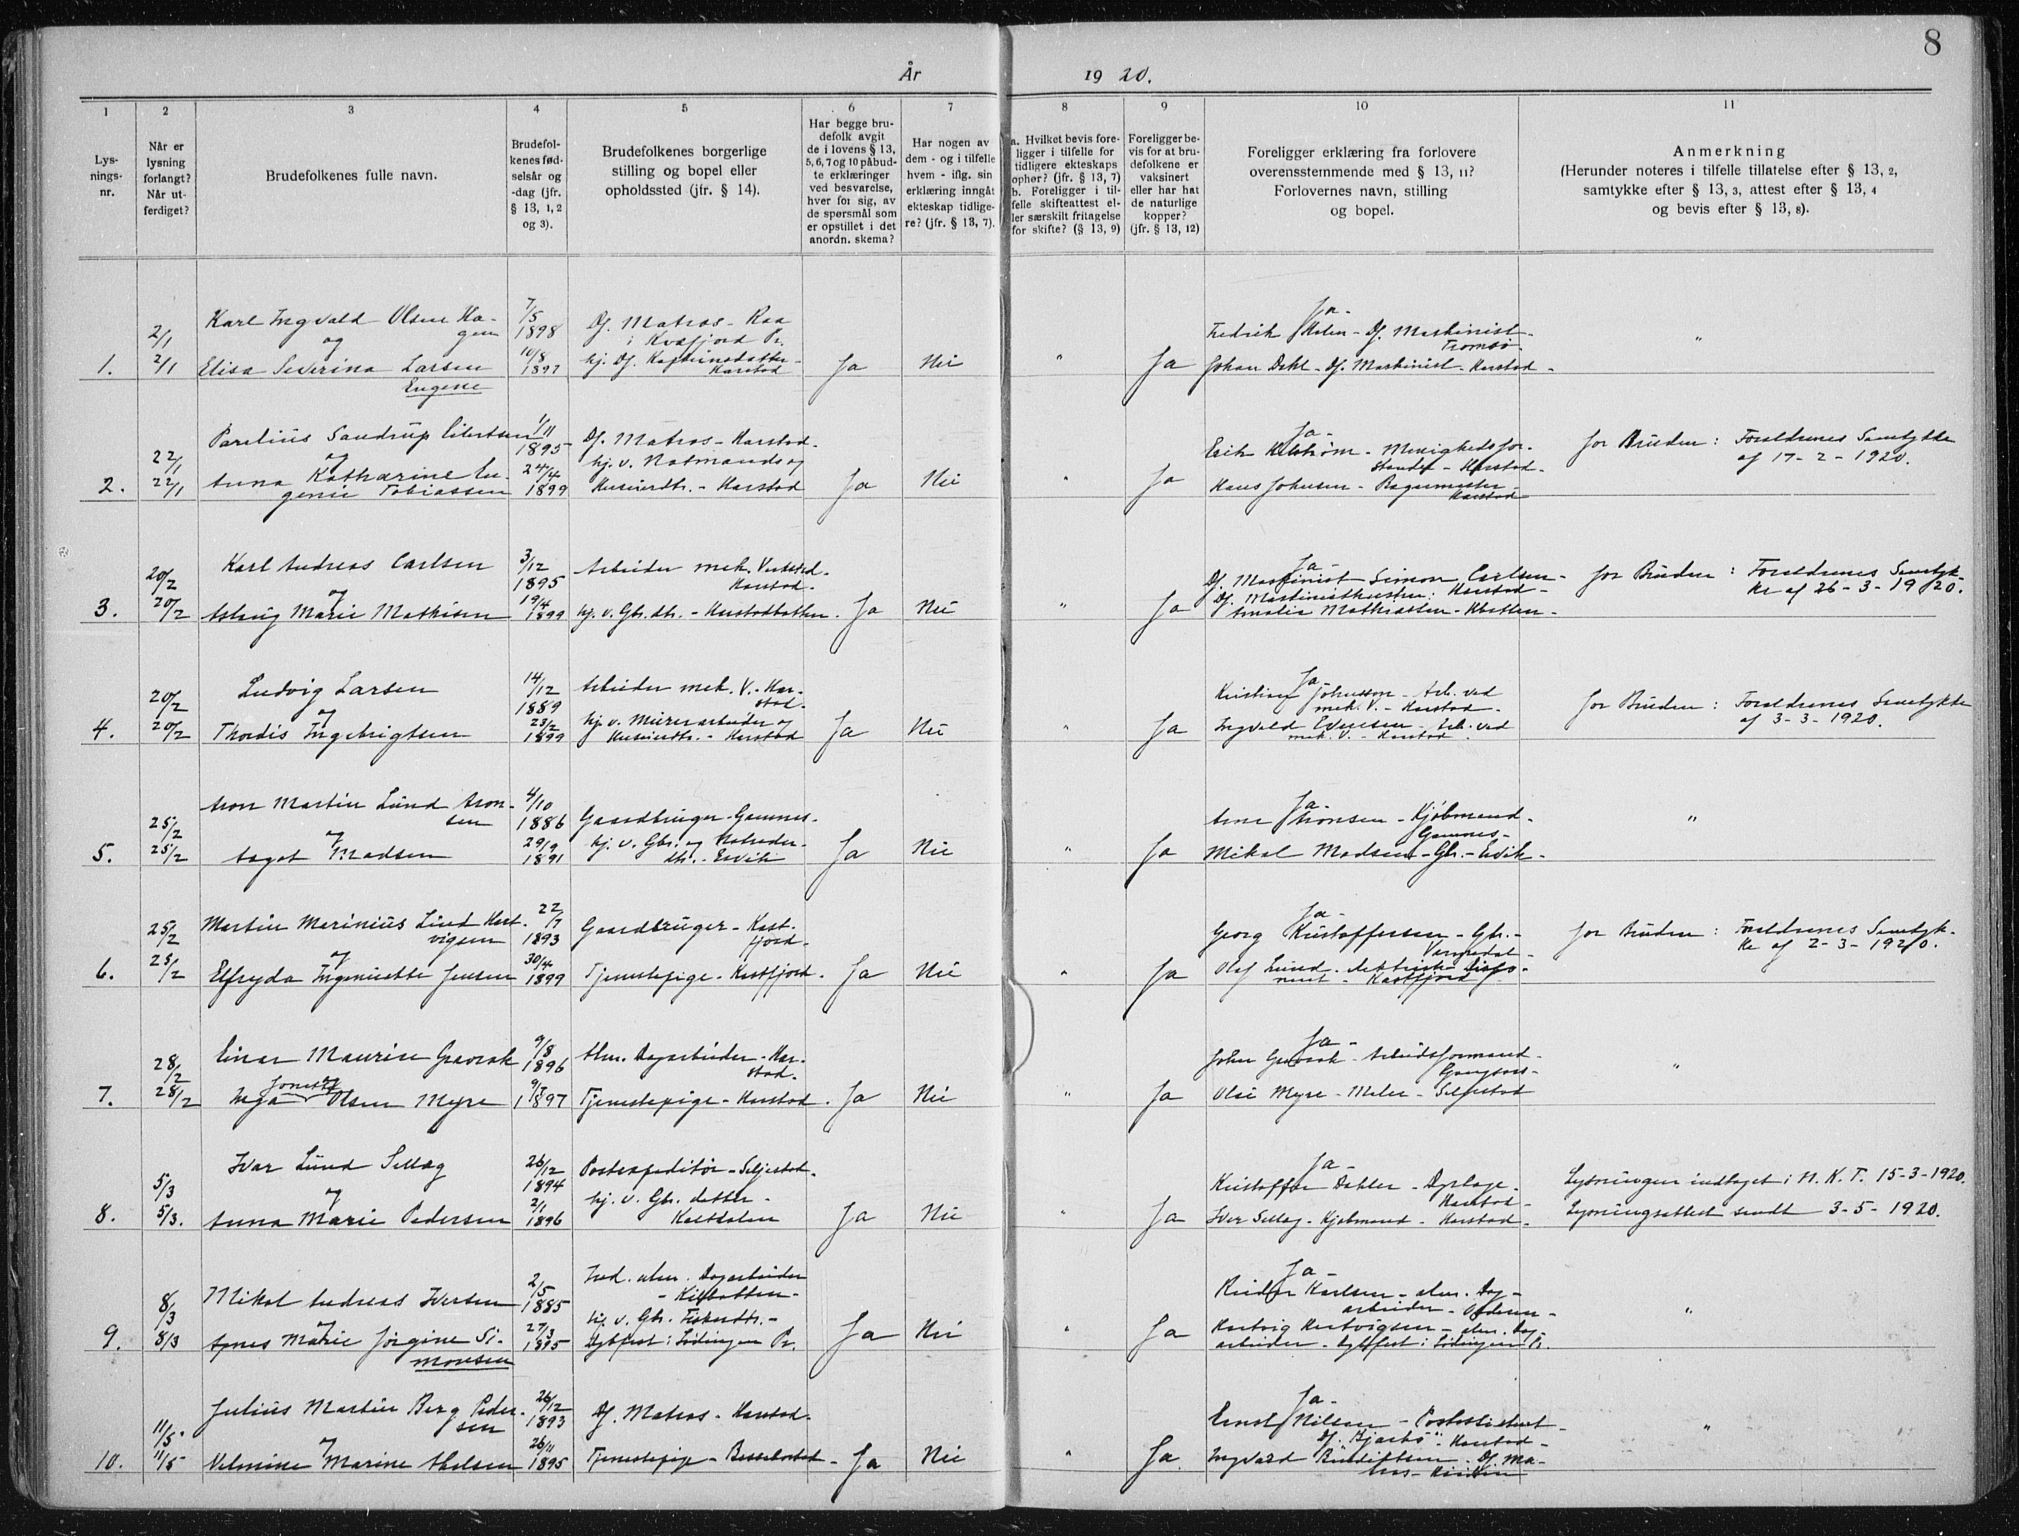 8
År 1920.
1
2
3
4
5
6
7
8
9
10
11
Lys-
nings-
nr.
Når er
lysning
forlangt?
Når ut-
ferdiget?
Brudefolkenes fulle navn.
Brudefol-
kenes fød-
selsår og
-dag (jfr.
§ 13, 1, 2
og 3).
Brudefolkenes borgerlige
stilling og bopel eller
opholdssted (jfr. § 14).
Har begge bru-
defolk avgit
de i lovens § 13,
5, 6, 7 og 10 påbud-
te erklæringer
ved besvarelse,
hver for sig, av
de spørsmål som
er opstillet i det
anordn. skema?
Har nogen av
dem - og i tilfelle
hvem - iflg. sin
erklæring inngåt
ekteskap tidlige-
re? (jfr. § 13, 7).
a. Hvilket bevis fore-
ligger i tilfelle for
tidligere ekteskaps
ophør? (jfr. § 13, 7)
b. Foreligger i til-
felle skifteattest el-
ler særskilt fritagelse
for skifte? (§ 13, 9)
Foreligger be-
vis for at bru-
defolkene er
vaksinert
eller har hat
de naturlige
kopper?
(jfr. § 13, 12)
Foreligger erklæring fra forlovere
overensstemmende med § 13, 11?
Forlovernes navn, stilling
og bopel.
Anmerkning
(Herunder noteres i tilfelle tillatelse efter § 13, 2,
samtykke efter § 13, 3, attest efter § 13, 4
og bevis efter § 13, 8).
1.
2/1
2/1
Karl Ingvald Olsen Ha-
gen
og
Elisa Severina Larsen
7/5
1898
10/8
1897
Df. Matros - Raa
i Kvæfjord Pr.
hj. Df.
Harstad
Ja
Nei
"
Ja
Ja -
Fredrik Holm - Df. Maskinist -
Tromsø -
Johan Dahl - Df. Maskinist - Harstad -
"
2.
22/1
22/1
Eugene
Parelius Sandrup Eilertsen
og
Anna Katharine Eu-
genie Tobiassen
1/11
1895
24/4
1899
Df. Matros - Harstad -
hj. v. Notmands og
Husmdtr. - Harstad
Ja
Nei
"
Ja
Ja -
Erik - Menighedsfor-
stander - Harstad -
Hans Johnsen - Bagermester -
Harstad
for Bruden: Forældrenes Samtykke
af 17-2-1920.
3.
20/2
20/2
Karl Andreas Carlsen
og
Aslaug Marie Mathisen
3/12
1895
19/4
1899
Arbeider mek. Verksted -
Harstad -
hj. v. Gbr. dtr. - Harstadbotten
Ja
Nei
"
Ja
Ja -
Df. Maskinist Simon Carlsen -
Df. Maskinisthustru: Harstad -
Amalia Mathiassen - Hbotten -
for Bruden: Forældrenes Samtyk-
ke af 26-3-1920.
4.
20/2
20/2
Ludvig Larsen
og
Thordis Ingebrigtsen
14/12
1889
23/2
1899
Arbeider mek. V. - Har-
stad -
hj. v. Murerarbeider og
Husmdtr. - Harstad
Ja
Nei
"
Ja
Ja -
Kristian Johnsson - Arb. ved
mek. V. - Harstad -
Ingvald Evensen - Arb. ved
mek. V. - Harstad
for Bruden: Forældrenes Samtykke
af 3-3-1920.
5.
25/2
25/2
Aron Martin Lund Aron-
sen
og
Aagot Madsen
4/10
1886
29/9
1891
Gaardbruger - Gamnes -
hj. v. Gbr. og
dtr. - Ervik
Ja
Nei
"
Ja
Ja -
Arne Aronsen - Kjøbmand -
Gamnes -
Mikal Madsen - Gbr. - Ervik -
"
6.
25/2
25/2
Martin Marinius Lund Hart-
vigsen
og
Elfryda Ingeniette Jensen
22/7
1893
30/4
1899
Gaardbruger - Kast-
fjord -
Tjenestepige - Kastfjord.
Ja
Nei
"
Ja
Ja -
Georg Kristoffersen - Gbr. -
Vangedal -
Olaf Lund - Kastfjord
for Bruden: Forældrenes Samtyk-
ke af 2-3-1920.
7.
28/2
28/2
Einar Maurin Gravrok
og
Inga Olsen Myre
9/8
1896
9/7
1897
Alm. Dagarbeider - Har-
stad -
Tjenestepige - Harstad.
Ja
Nei
"
Ja
Ja -
John Gravrok - Arbeidsformand -
Gangsaas -
Olai Myre - Maler - Seljestad
"
8.
5/3
5/3.
Ivar Lund Sellæg
og
Anna Marie Pedersen
26/12
1894
2/1
1896
Postexpeditør - Seljestad -
hj. v. Gbr. datter -
Kaltdalen
Ja
Nei
"
Ja
Ja -
Kristoffer Dahler - Dyrlæge -
Harstad -
Iver Sellæg - Kjøbmand - Harstad -
Lysningen indtaget i N. K. T. 15-3-1920.
Lysningsattest sendt 3-5-1920.
9.
8/3
8/3
Mikal Andreas Iversen
og
Agnes Marie Jørgine Si-
monsen
2/5
1885
27/3
1895
Ind. alm. Dagarbeider
- Kilbotten -
hj. v. Gbr. Fiskerdtr. -
Dybfest i Lødingen Pr.
Ja
Nei
"
Ja
Ja -
Reidar Karlsen - alm. Dag-
arbeider -
Hartvig Hartvigsen - alm. Dag-
arbeider - Dybfest i Lødingen Pr.
"
10.
11/5
11/5
Julius Martin Berg Peder-
sen
og
Velmine Marine Abelsen
26/12
1893
26/11
1895
Df. Matros - Harstad -
Tjenestepige - Besseboestad -
Ja
Nei
"
Ja
Ja -
Ernst Nilsen -
Df. - Harstad -
Ingvard Benediktsen - Df. Ma-
tros -
"